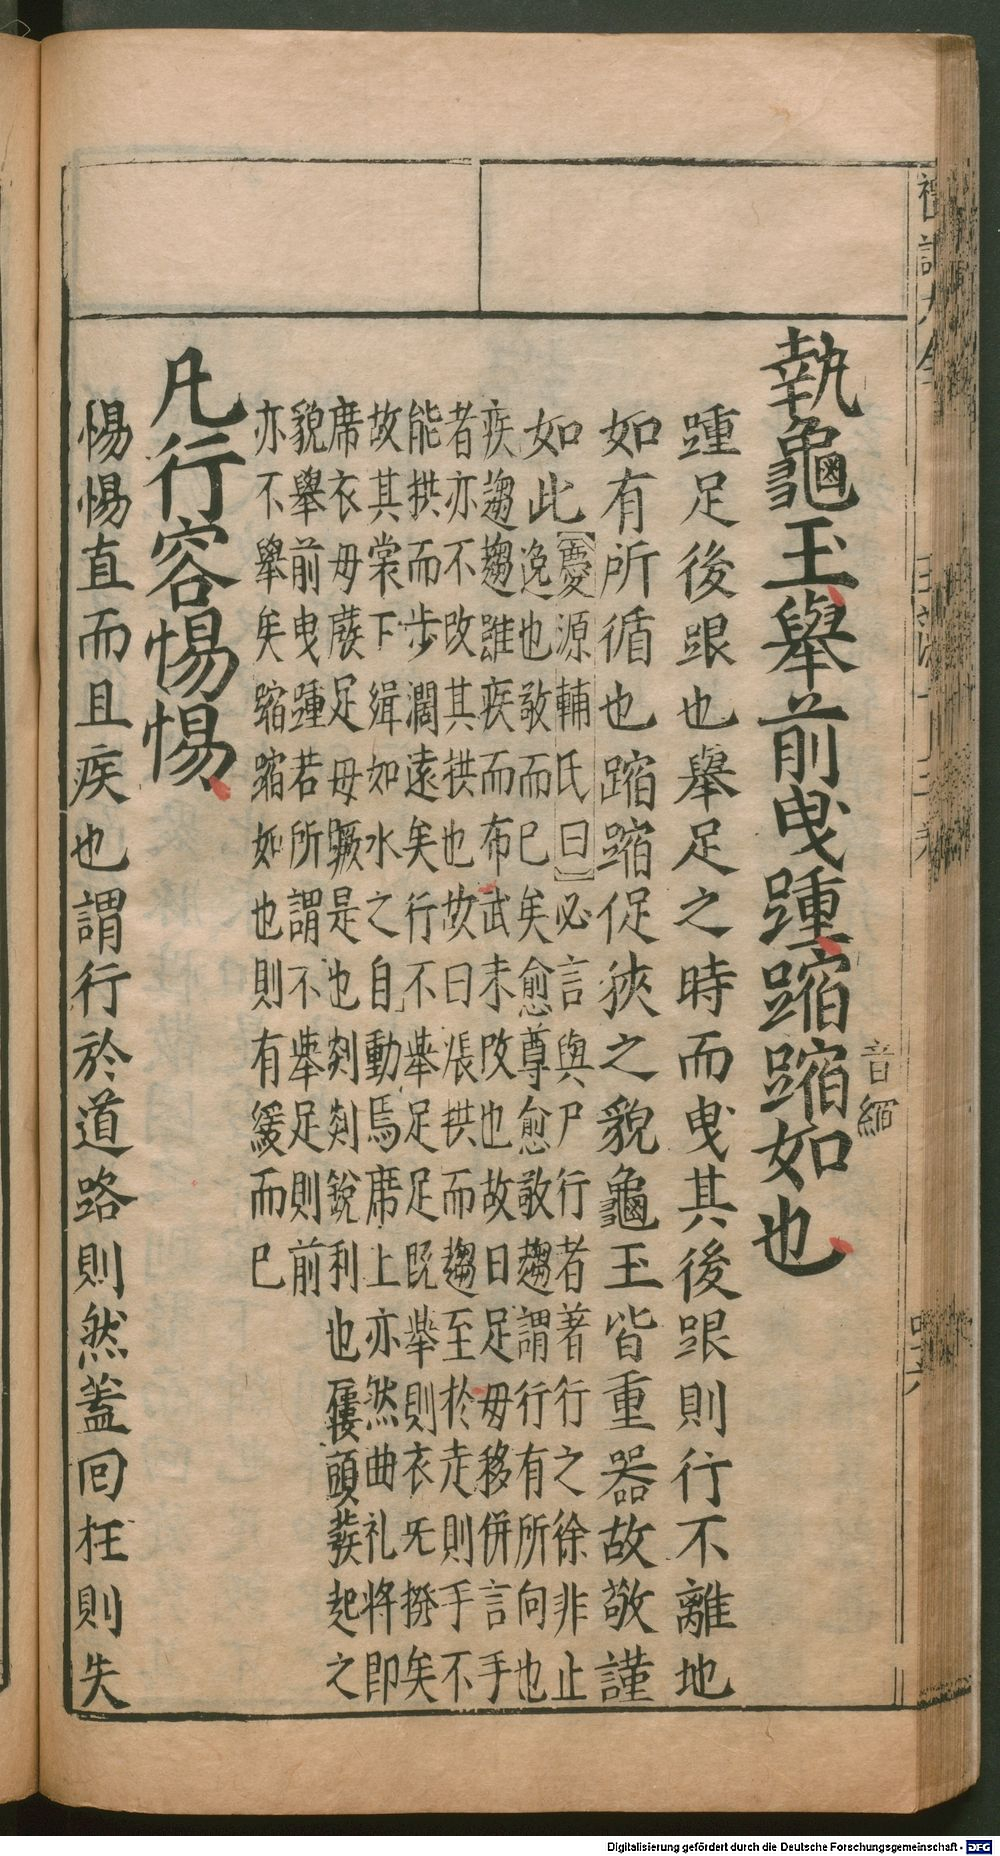 執龜玉舉前曳踵蹜蹜如也
音縮
踵足後跟也舉足之時而曳其後跟則行不離地
如有所循也蹜蹜促狹之貌龜玉皆重器故敬謹
如此
慶源輔氏曰必言與尸行者著行之徐非止
逸也敬而已矣愈尊愈敬趨謂行有所向也
疾趨趨雖疾而布武未改也故曰足毋移併言手
者亦不改其拱也故曰張拱而趨至於走則手不
能拱而步濶遠矣行不舉足足既舉則衣旡撥矣
故其裳下緝如水之自動焉席上亦然曲礼將即
席衣毋蕟足毋蹶是也剡剡銳利也屨頭蕟起之
貌舉前曳踵若所謂不舉足則前
亦不舉矣蹜蹜如也則有緩而已
凡行容惕惕
惕惕直而且疾也謂行於道路則然蓋囘枉則失
Digitalisierung gefördert durch die Deutsche Forschungsgemeinschaft - DFG